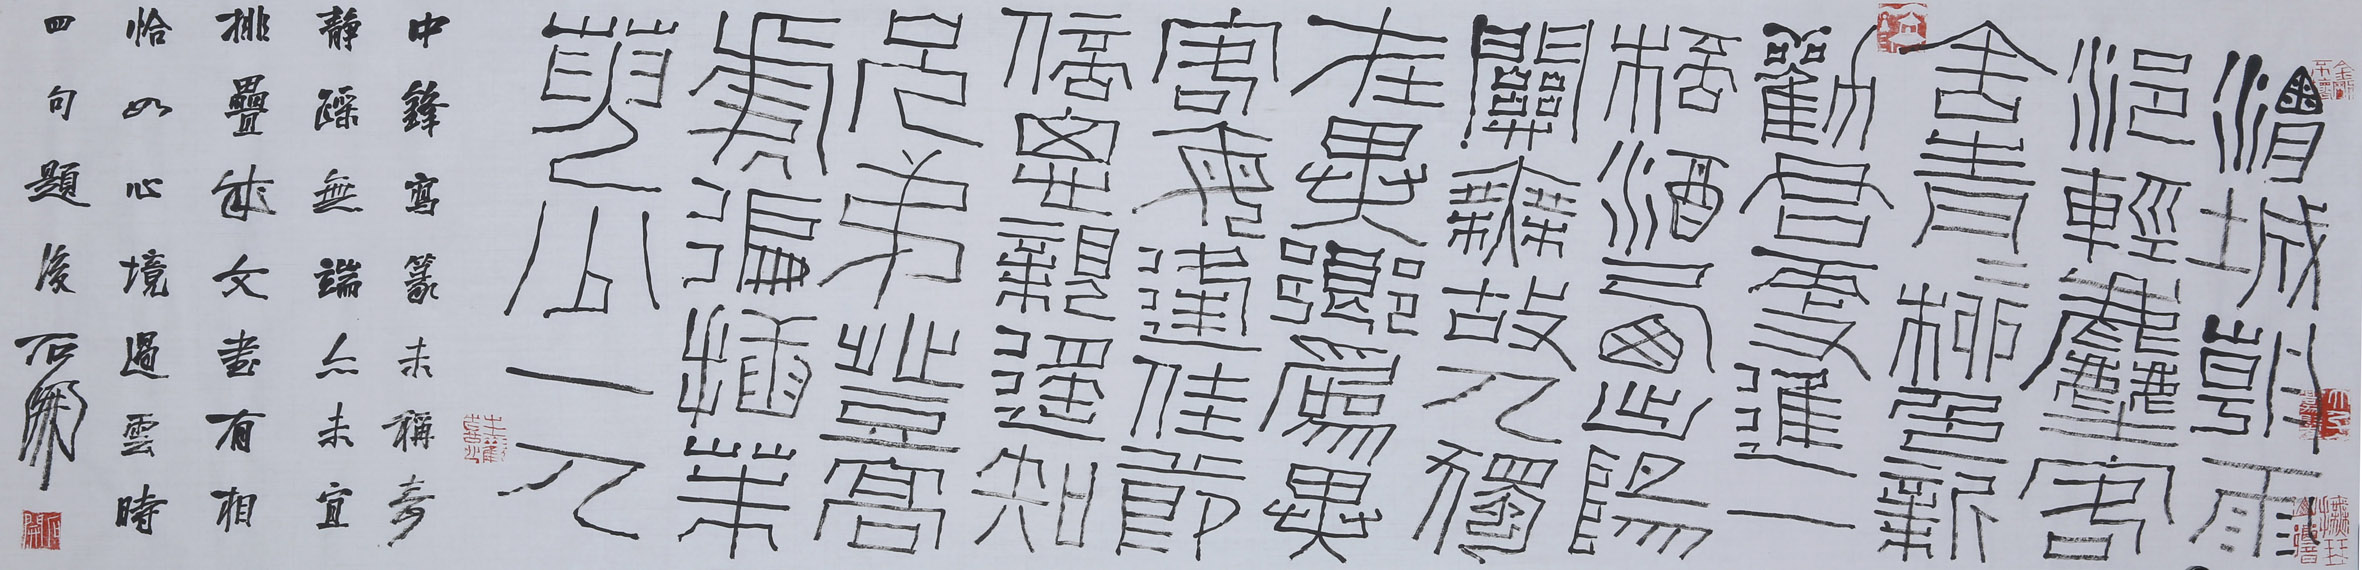 渭城朝雨
浥輕塵客
舍青〻柳色新
勸君更進一
桮酒西出陽
關無故人獨
在異鄉為異
客每逢佳節
倍思親遙知
兄弟登高
處遍插茱
萸少一人
中鋒寫篆未稱奇
靜躁無端亦未宜
排疊成文書有相
恰如心境過雲時
四句題後 石開
石開